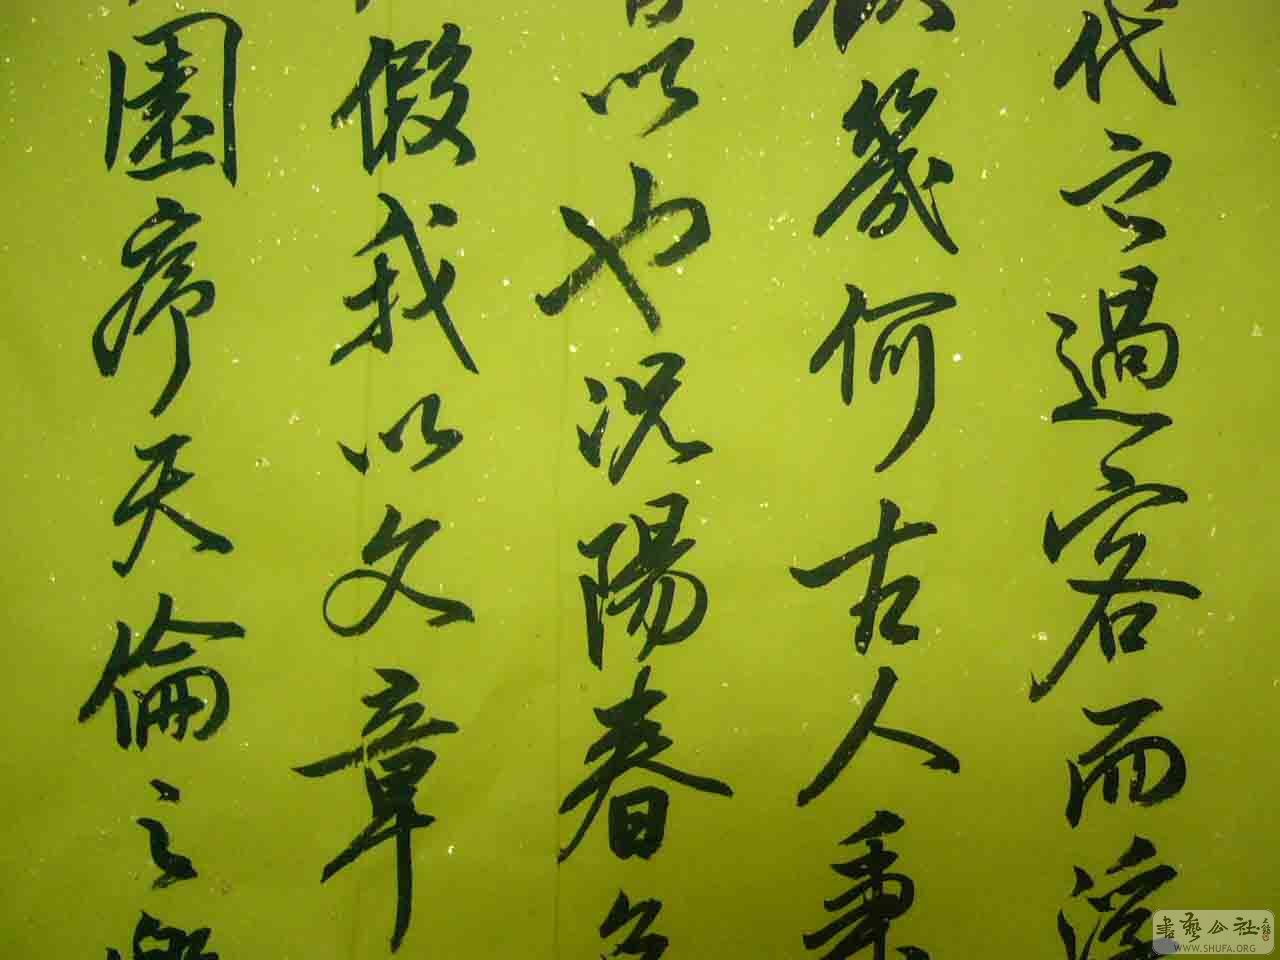 代之過客而浮
幾何古人秉
以也況陽春
假我以文章
園序天倫之樂
書藝公社
WWW.SHUFA.ORG